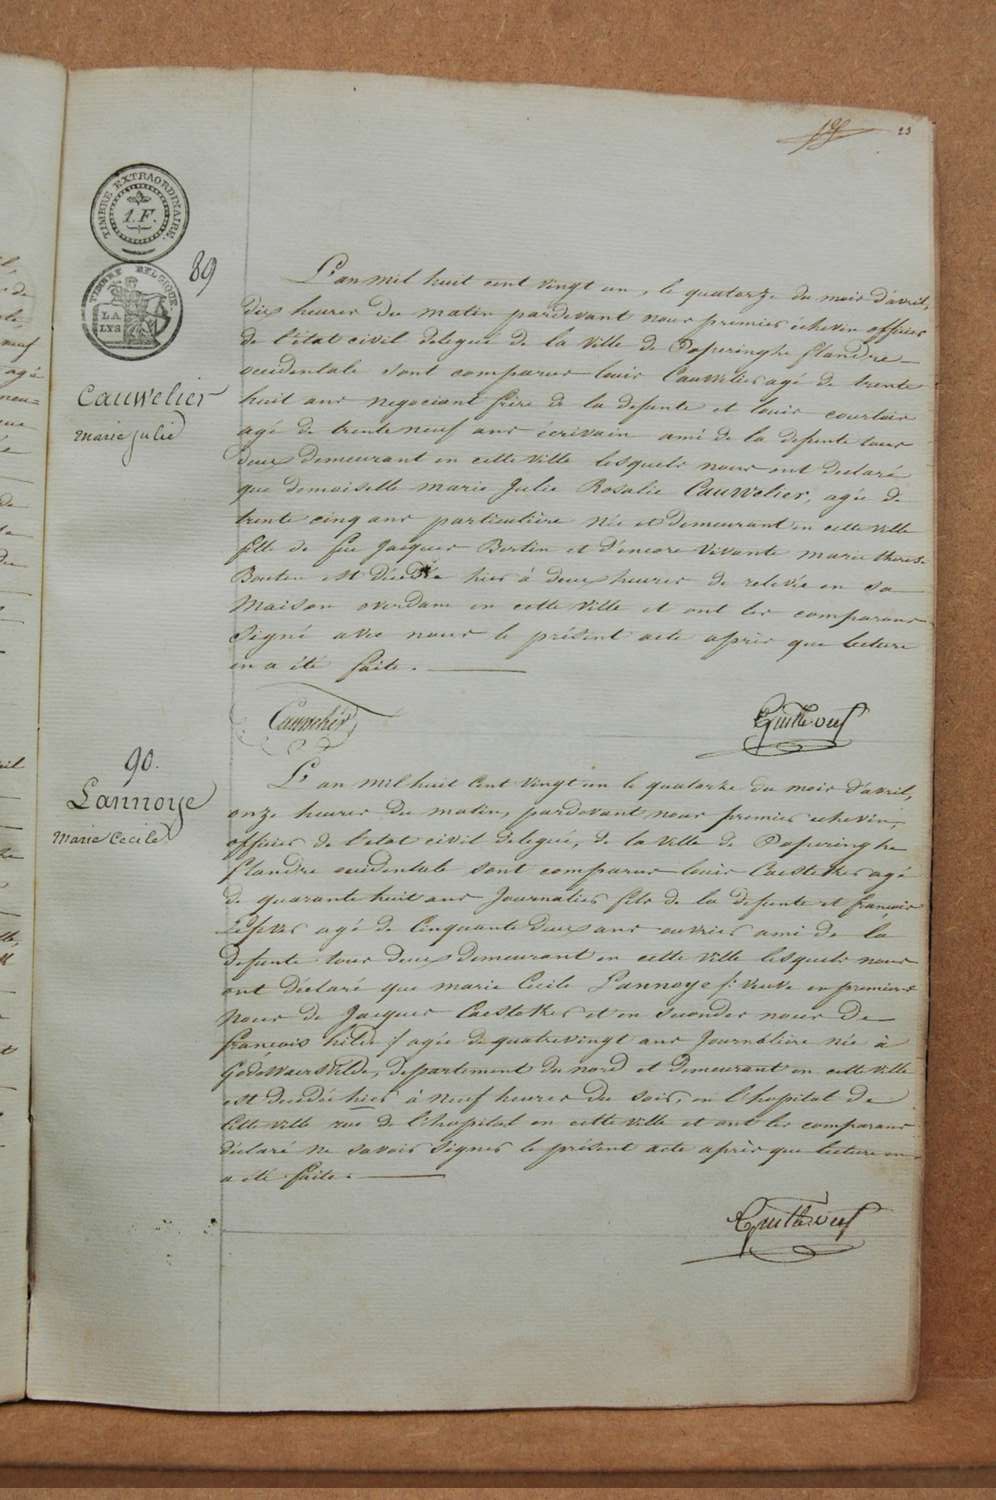 23
TIMBRE EXTRAORDINAIRE.
1.F.
TIMBRE BELGIQUE.
LA LYS
89
Cauwelier
Marie Julie
L'an mil huit cent vingt un, le quatorze du mois d'avril,
dix heures du matin pardevant nous premier échevin officier
de l'état civil delegué de la ville de Poperinghe flandre
occidentale sont comparus louis Cauwelier agé de trente
huit ans negociant frère à la defunte et louis courtois
agé de trente neuf ans écrivain ami de la defunte tous
deux demeurant en cette ville lesquels nous ont declaré
que demoiselle marie Julie Rosalie Cauwelier, agée de
trente cinq ans particulière née et demeurant en cette ville
fille de feu Jacques Bertin et d'encore vivante marie therese
Bouten est décédée hier à deux heures de relevée en sa
Maison overdam en cette ville et ont les comparans
signé avec nous le présent acte après que lecture
en a été faite.
Cauwelier
90.
Lannoye
Marie Cecile
L'an mil huit cent vingt un le quatorze du mois d'avril,
onze heures du matin, pardevant nous premier echevin,
officier de l'état civil delegué, de la ville de Poperinghe
flandre occidentale sont comparus louis Caesteker agé
de quarante huit ans Journalier fils de la defunte et françois
agé de Cinquante deux ans ouvrier ami de la
defunte tous deux demeurant en cette ville lesquels nous
ont déclaré que marie Cecile Lannoye /: veuve en premiere
Noces de Jacques Caesteker et en secondes noces de
françois :/ agée de quatrevingt ans Journalière née à
Godewaersvelde, departement du nord et demeurant en cette ville
est decedée hier à neuf heures du soir, en l'hopital de
Cette ville rue de l'hopital en cette ville et ont les comparans
déclaré ne savoir signer le présent acte après que lecture en
a été faite.